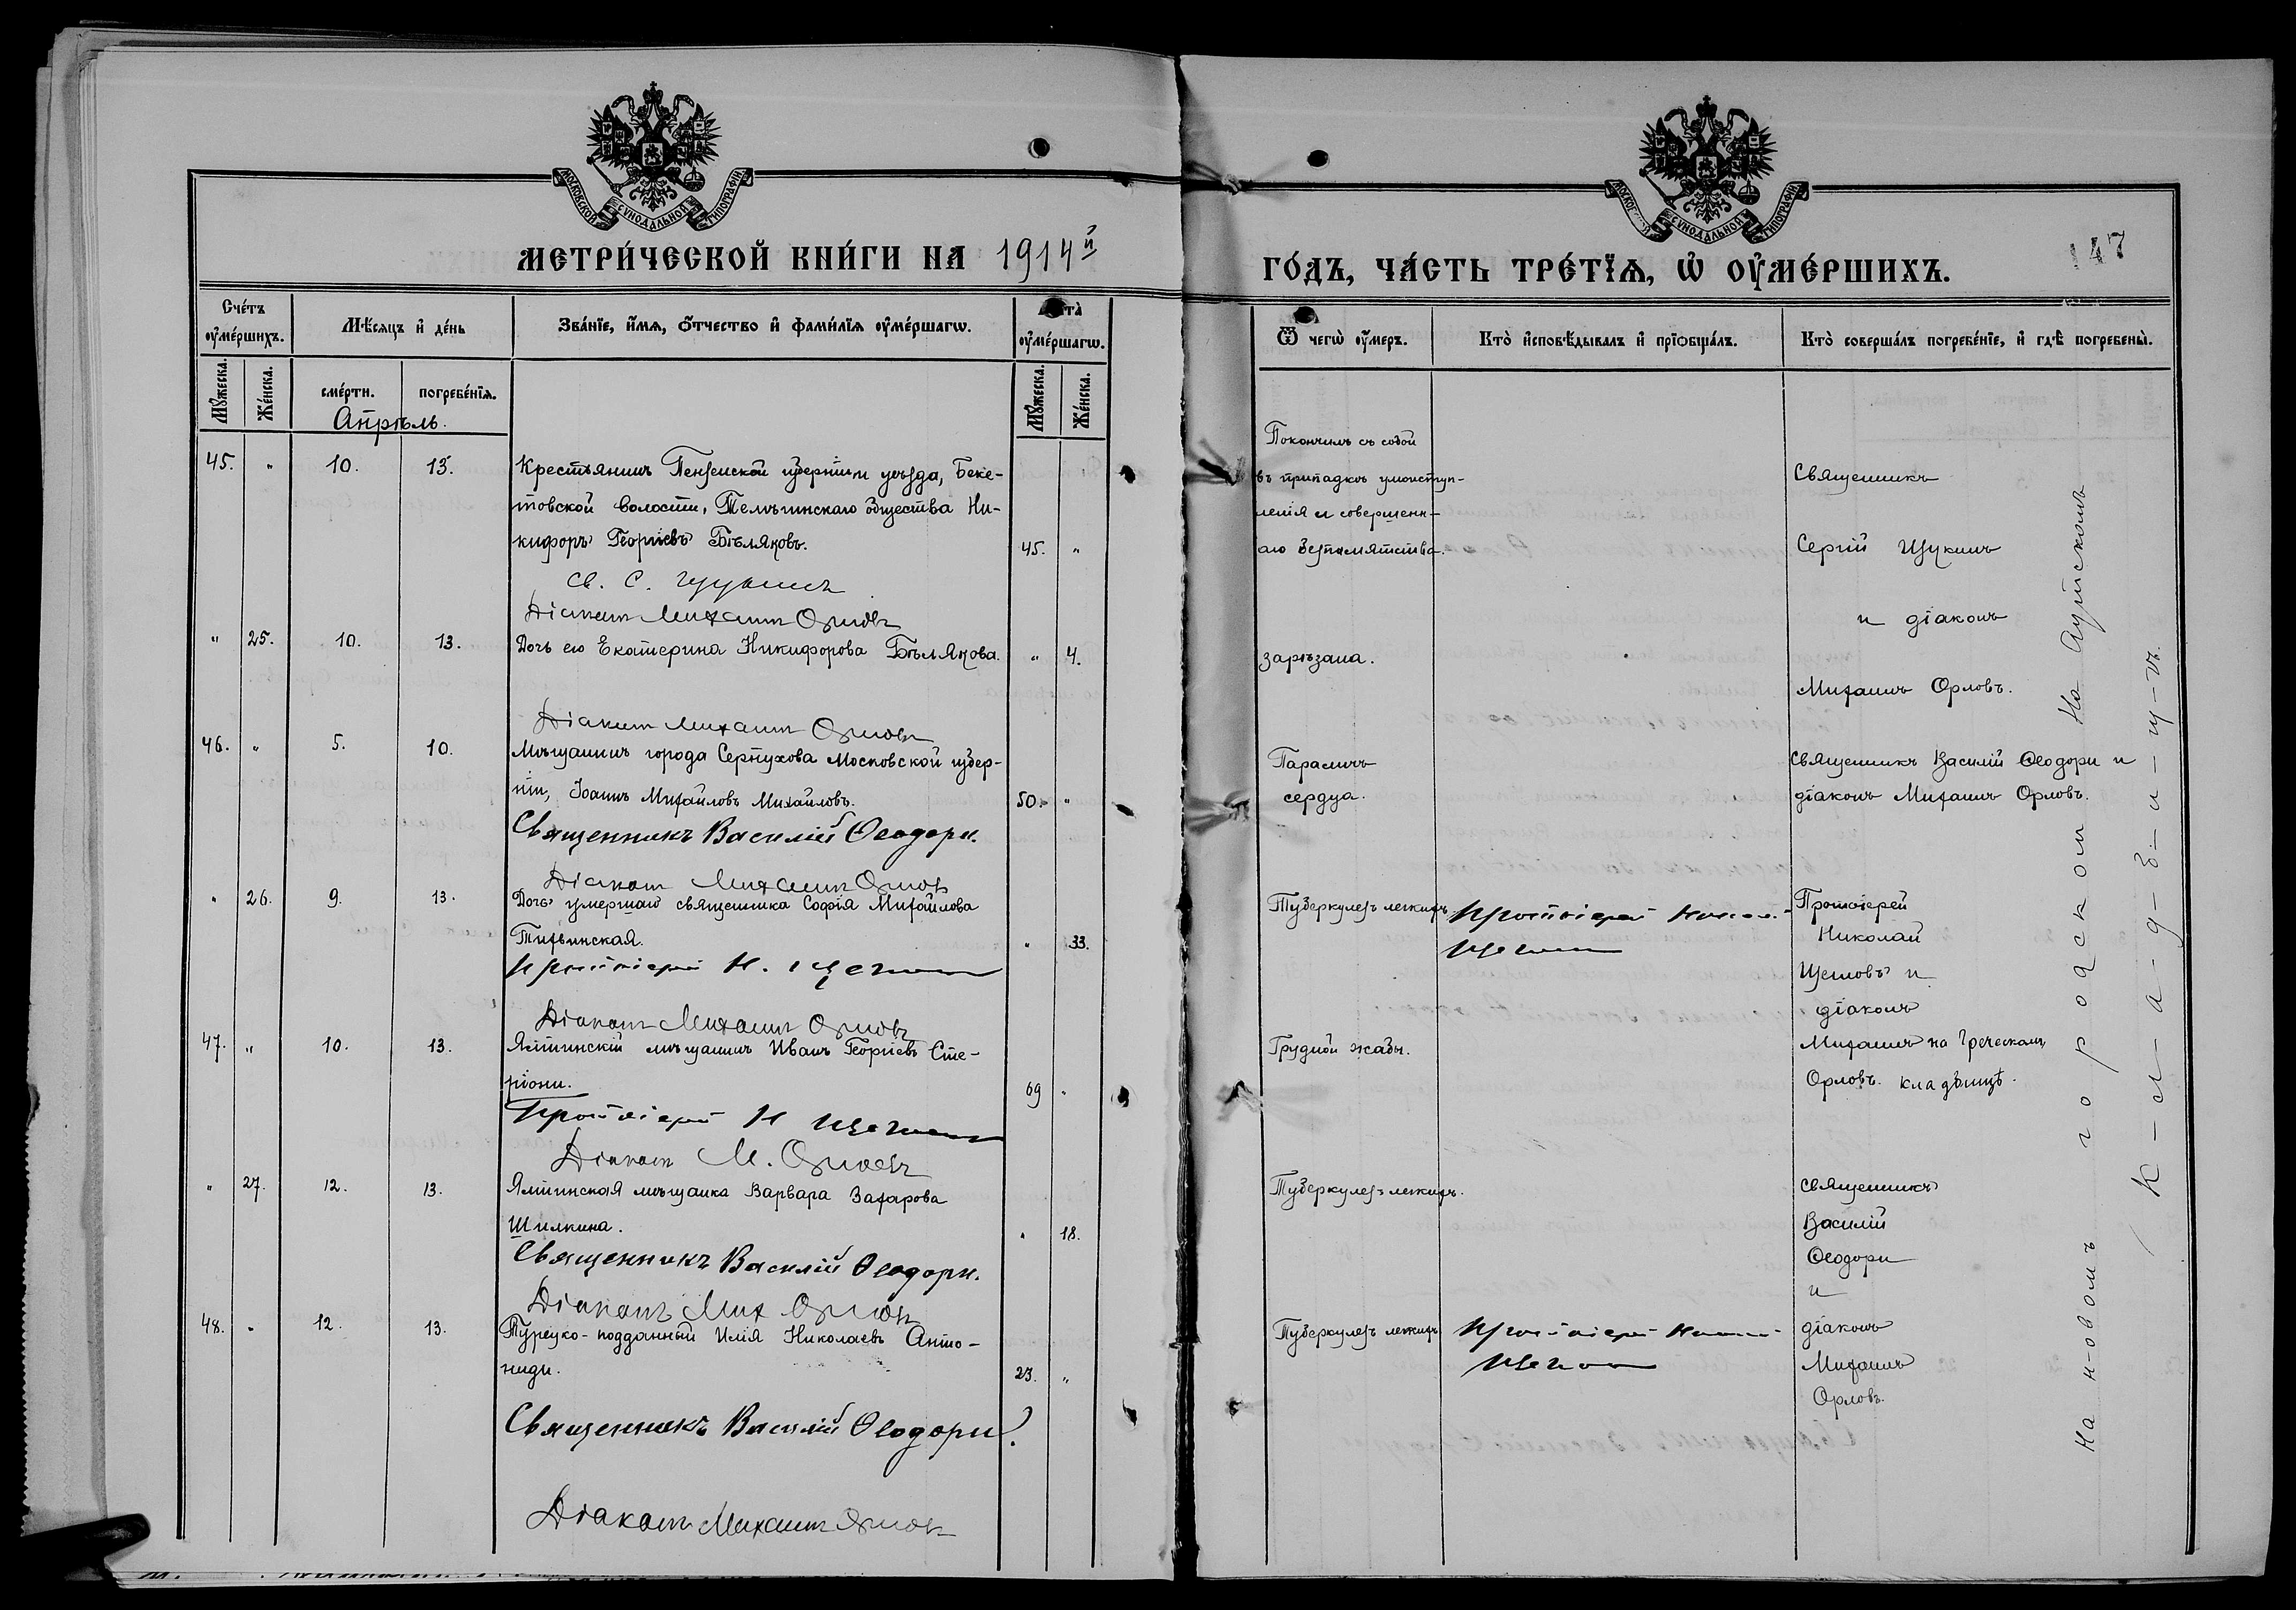 МОСКОВСКОЙ СУНОДАЛЬНОЙ ТИПОГРАФІИ
МЕТРИ́ЧЕСКОЙ КНИ́ГИ НА 1914й
Сче́тъ ᲂу҆ме́ршихъ.
Мѣ́сяцъ и҆ де́нь
Зва́нїе, и҆́мя, ѻ҆́тчество и҆ фами́лїя ᲂу҆ме́ршагѡ.
Лѣта̀ ᲂу҆ме́ршагѡ.
Мꙋ́жеска.
Же́нска.
сме́рти.
погребе́нїя.
Мꙋ́жеска.
Же́нска.
Апрѣль.
45. " 10. 13. Крестьянинъ Пензенской губерніи и уѣзда, Беке-
товской волости, Телѣгинскаго общества Ни-
кифоръ Георгіевъ Бѣляковъ. 45. "
Св. С. Щукинъ
Діаконъ Михаилъ Орловъ
" 25. 10. 13. Дочь его Екатерина Никифорова Бѣлякова. " 4.
Діаконъ Михаилъ Орловъ
46. " 5. 10. Мѣщанинъ города Серпухова Московской губер-
ніи, Іоаннъ Михайловъ Михайловъ. 50. "
Священникъ Василій Ѳеодори.
Діаконъ Михаилъ Орловъ
" 26. 9. 13. Дочь умершаго священника Софія Михайлова
Тихвинская. " 33.
Протоіерей Н. Щегловъ
Діаконъ Михаилъ Орловъ
47. " 10. 13. Ялтинскій мѣщанинъ Иванъ Георгіевъ Сте-
ріони. 69 "
Протоіерей Н Щегловъ
Діаконъ М. Орловъ
" 27. 12. 13. Ялтинская мѣщанка Варвара Захарова
Шилкина. " 18.
Священникъ Василій Ѳеодори.
Діаконъ Мих Орловъ
48. " 12. 13. Турецко-подданный Илія Николаевъ Анто-
ниди. 23. "
Священникъ Василій Ѳеодори.
Діаконъ Михаилъ Орловъ
СУНОДАЛЬНОЙ ТИПОГРАФІИ
ГО́ДЪ, ЧА́СТЬ ТРЕ́ТЇЯ, Ѡ҆ ОУ҆МЕ́РШИХЪ.
147
Ѿ чегѡ̀ ᲂу҆́меръ.
Кто̀ и҆сповѣ́дывалъ и҆ прїѡбща́лъ.
Кто̀ соверша́лъ погребе́нїе, и҆ гдѣ̀ погребены̀.
Покончилъ съ собой
въ припадкѣ умоиступ-
ленія и совершенн-
аго безпамятства.
Священникъ
Сергій Щукинъ
и діаконъ
Михаилъ Орловъ.
зарѣзана.
Параличъ
сердца.
Священникъ Василій Ѳеодори и
діаконъ Михаилъ Орловъ.
Туберкулезъ легкихъ.
Протоіерей Никол.
Щегловъ
Протоіерей
Николай
Щегловъ и
діаконъ
Михаилъ на Греческомъ
Орловъ. кладбищѣ.
Грудной жабы.
Туберкулезъ легкихъ.
Священникъ
Василій
Ѳеодори
и
діаконъ
Михаилъ
Орловъ.
Туберкулезъ легкихъ
Протоіерей
Щегловъ
На новомъ городскомъ На Аутскомъ
К-л-а-д-б-и-щ-ѣ.